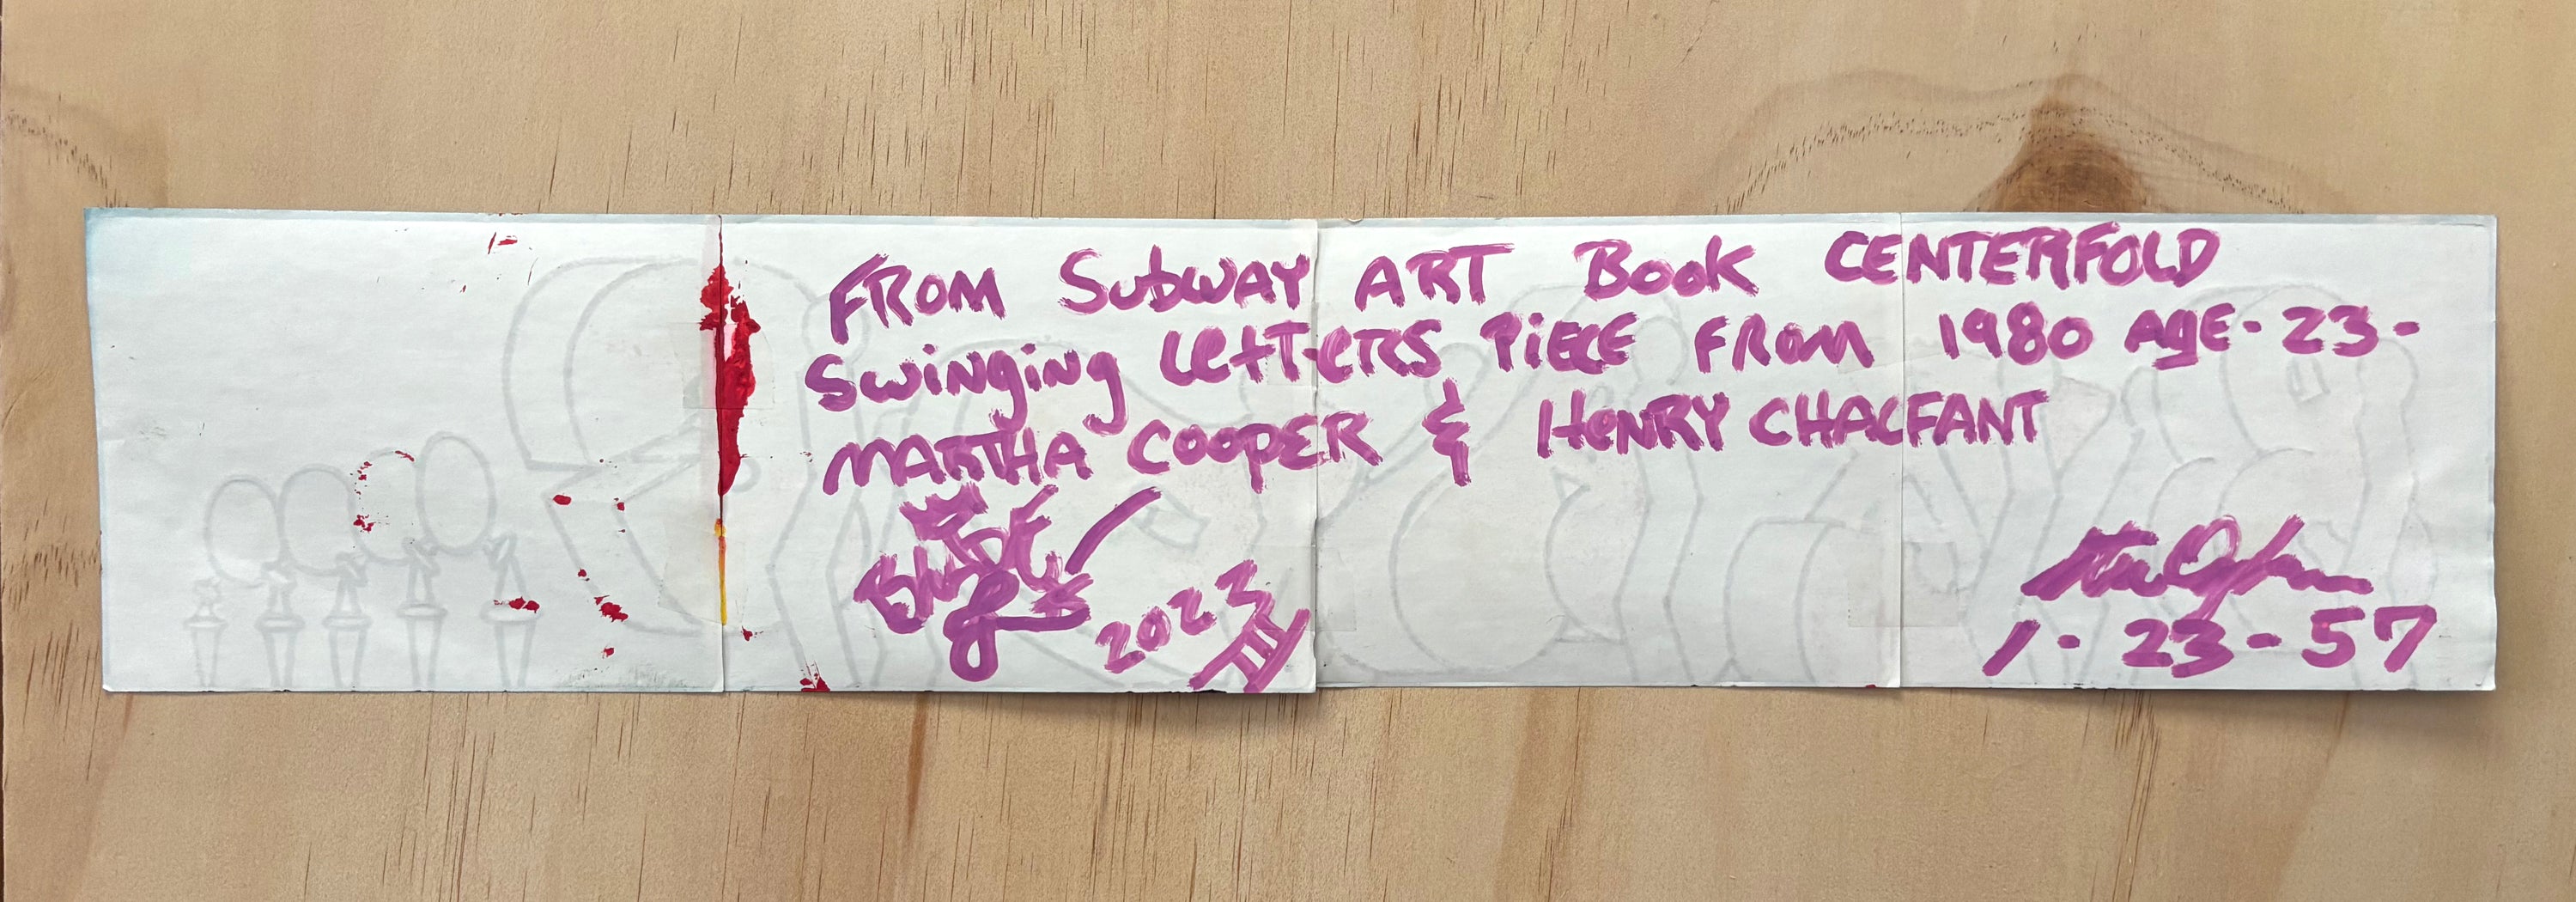 FROM SUBWAY ART Book CENTERFOLD
Swinging LETTERS PiECE FROM 1980 AgE-23-
MARTHA COOPER & HENRY CHALFANT
BLADE
2023
1-23-57